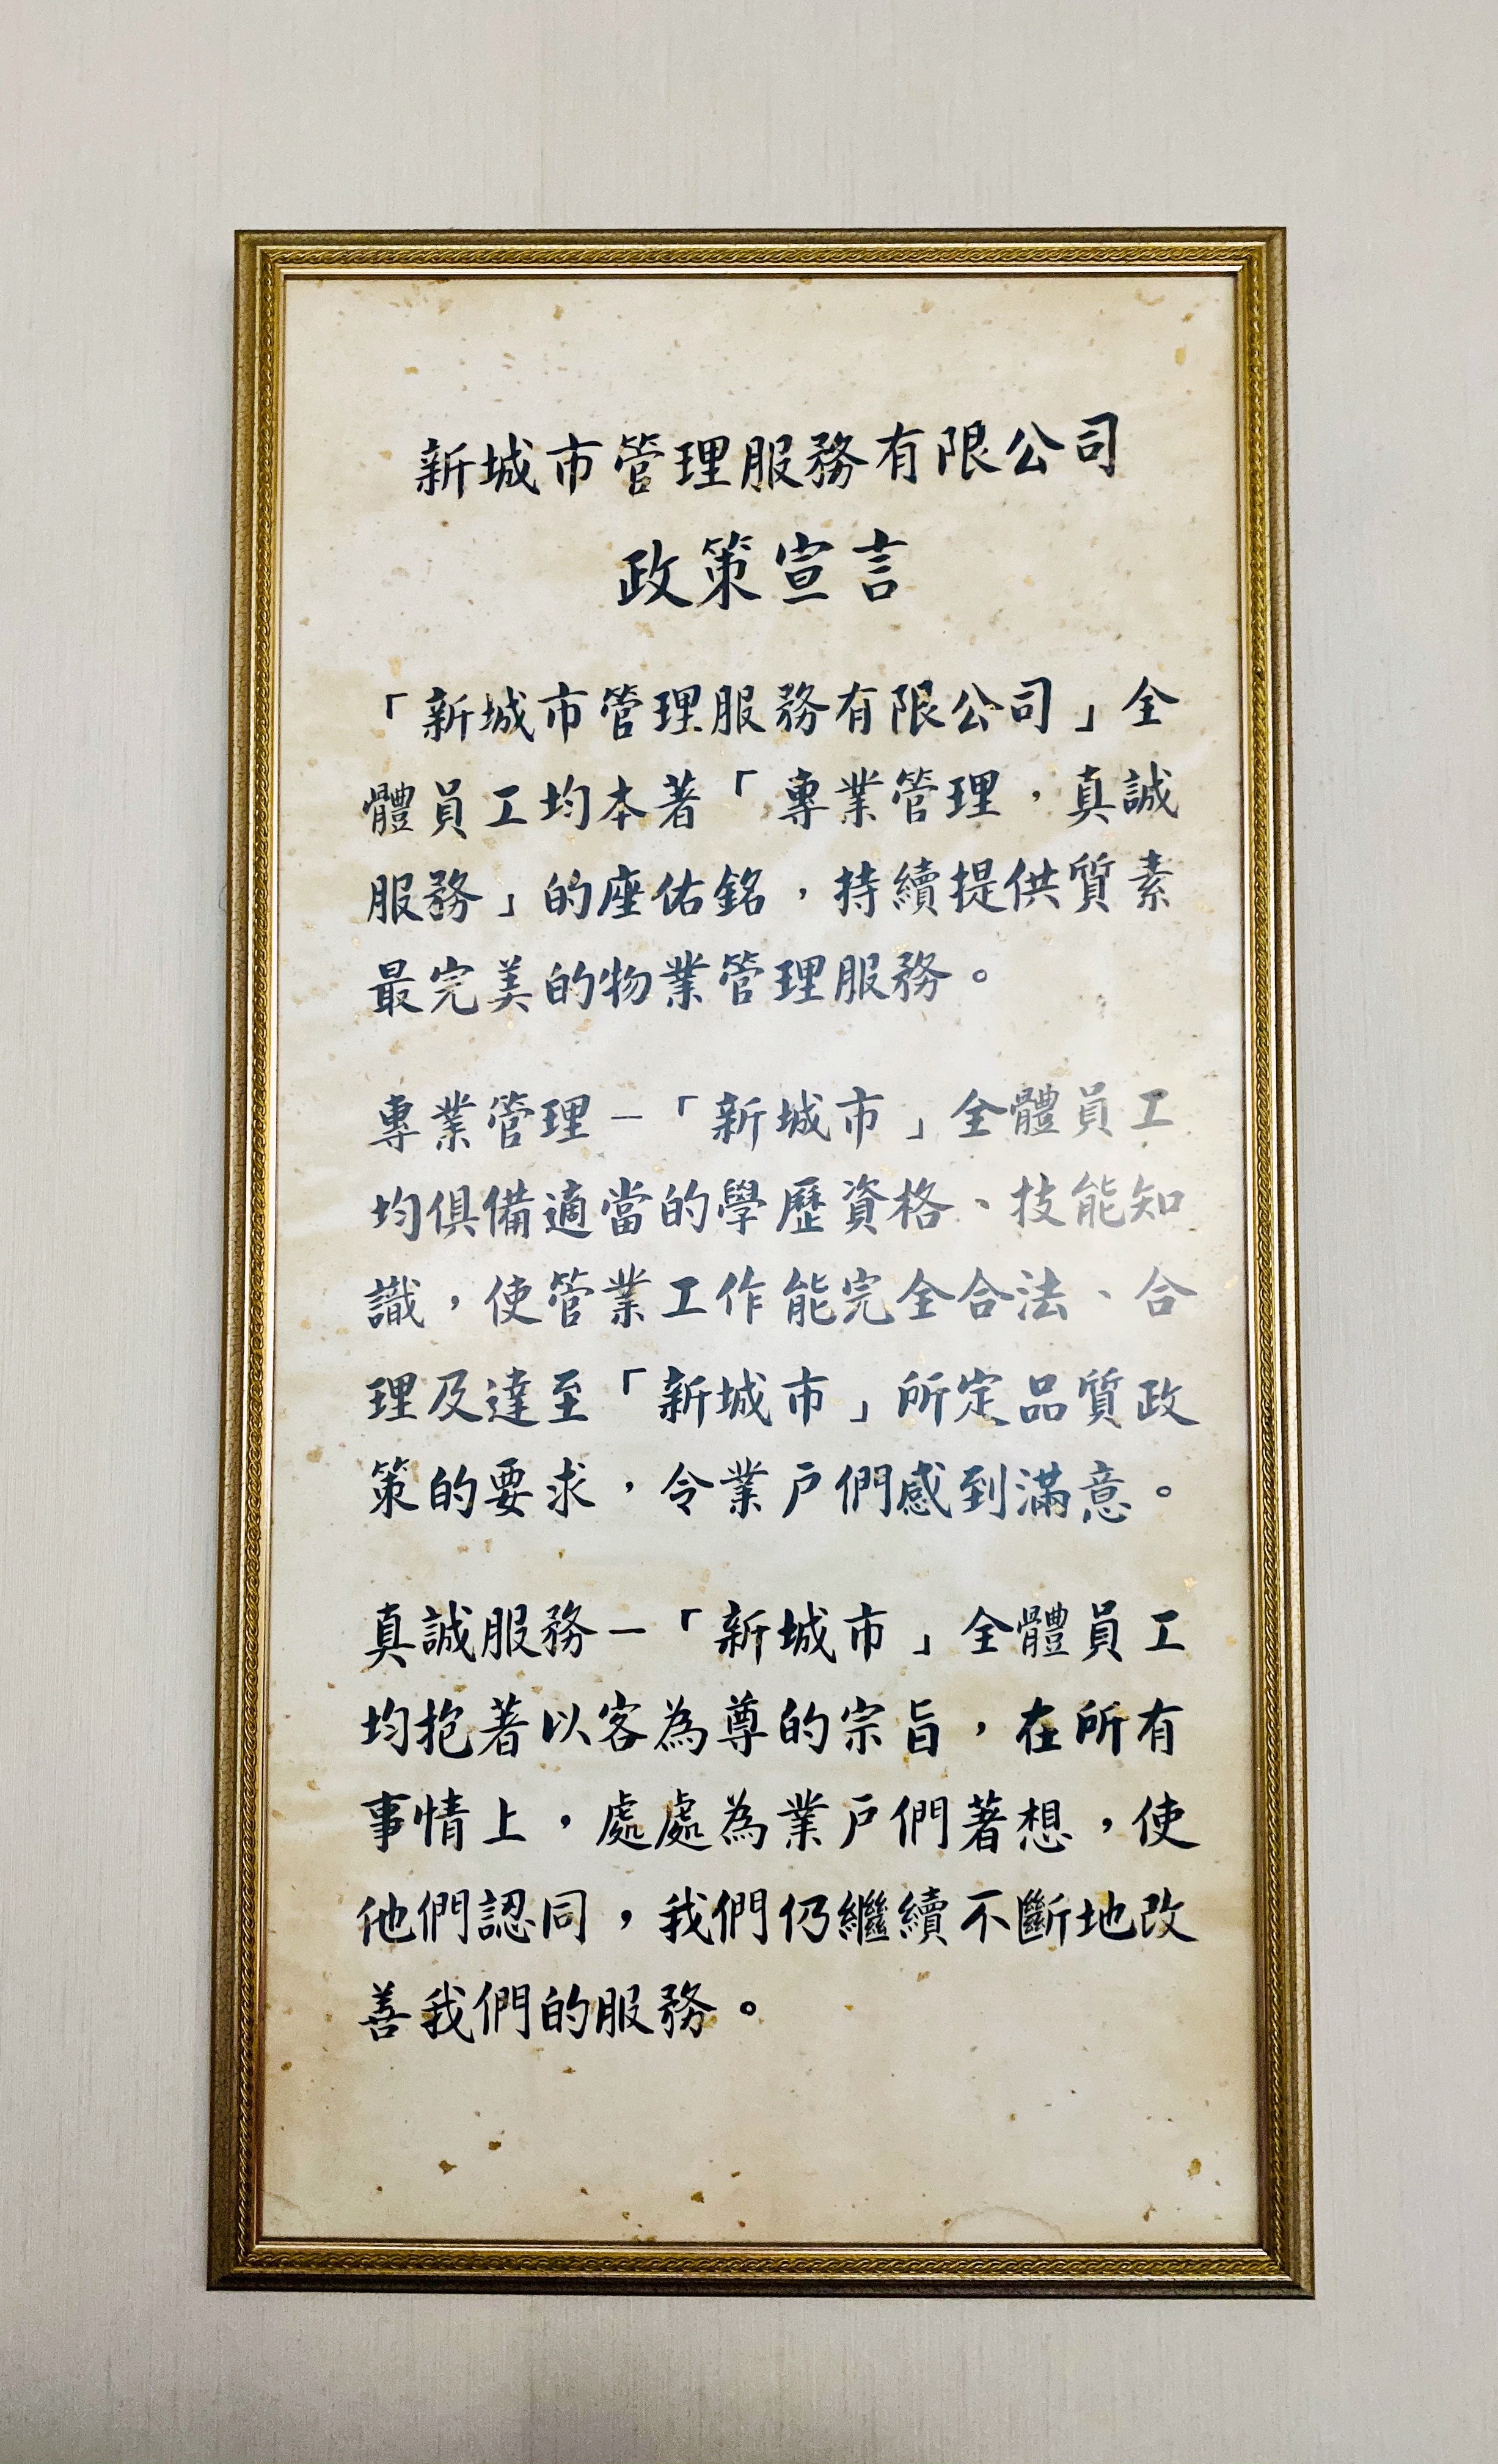 新城市管理服務有限公司
政策宣言
「新城市管理服務有限公司」全
體員工均本著「專業管理，真誠
服務」的座佑銘，持續提供質素
最完美的物業管理服務。
專業管理－「新城市」全體員工
均俱備適當的學歷資格、技能知
識，使管業工作能完全合法、合
理及達至「新城市」所定品質政
策的要求，令業戶們感到滿意。
真誠服務－「新城市」全體員工
均抱著以客為尊的宗旨，在所有
事情上，處處為業戶們著想，使
他們認同，我們仍繼續不斷地改
善我們的服務。